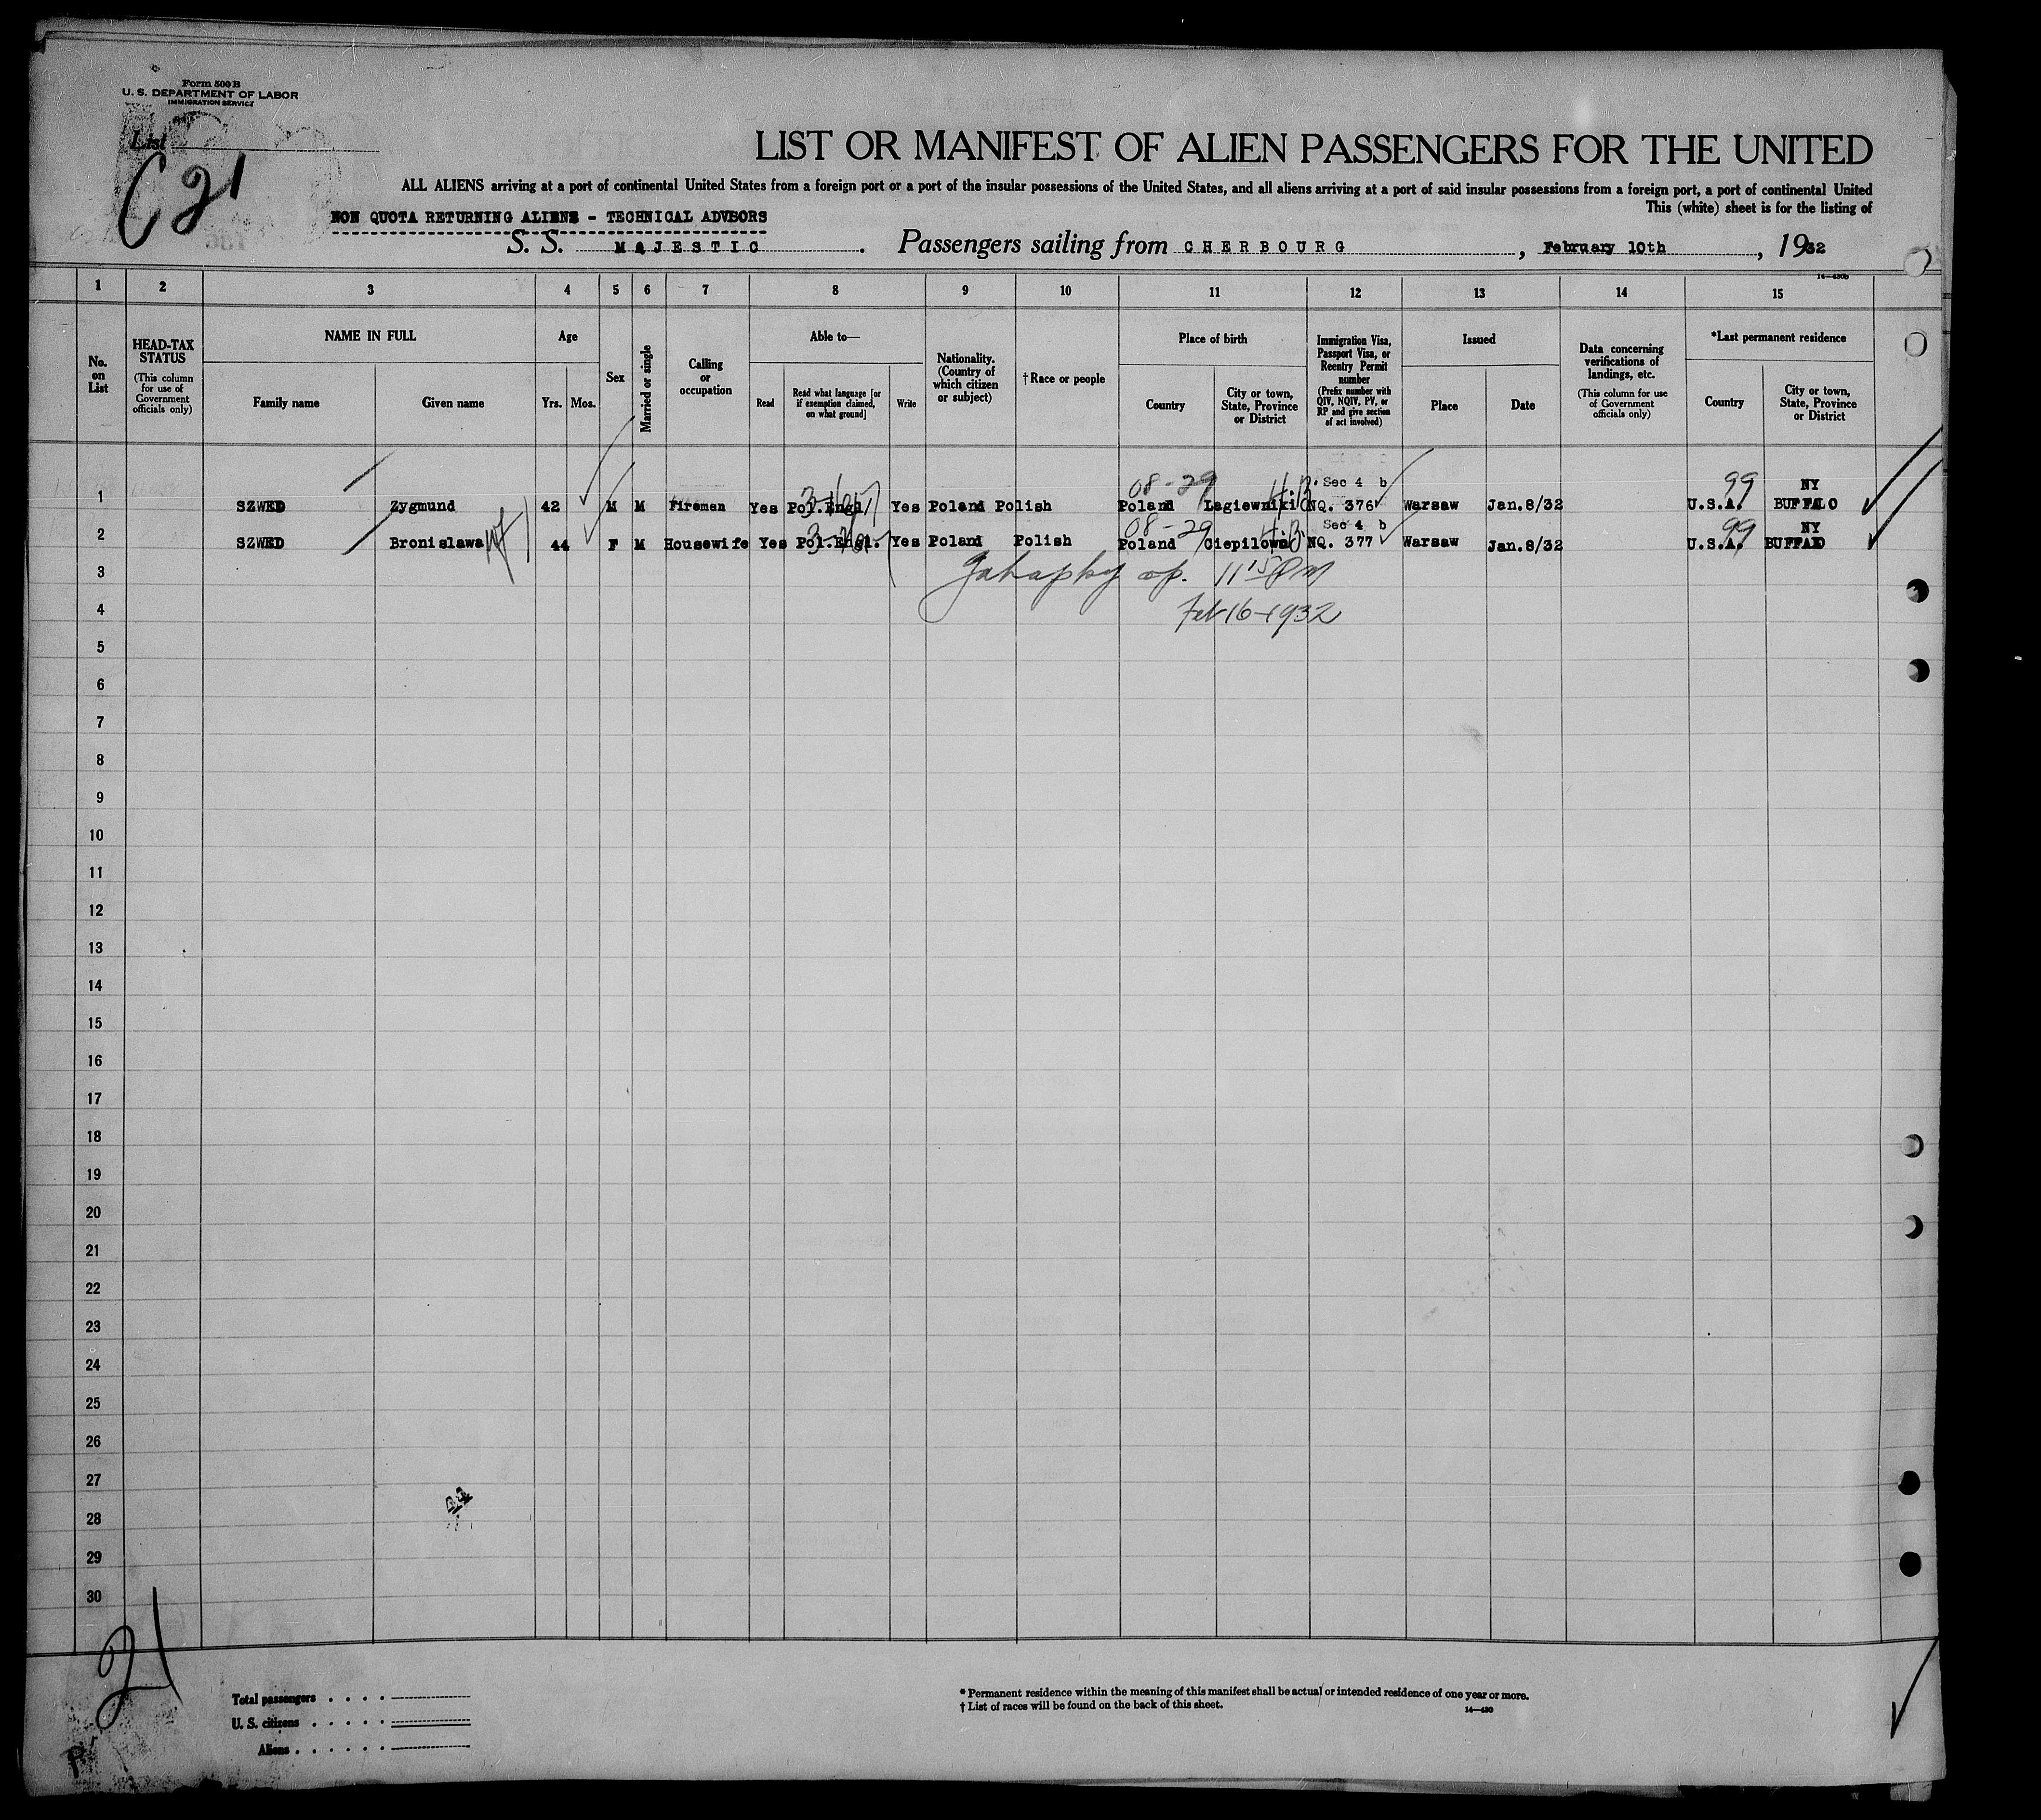 Form 500 B
U. S. DEPARTMENT OF LABOR
IMMIGRATION SERVICE
List
C 21
LIST OR MANIFEST OF ALIEN PASSENGERS FOR THE UNITED
ALL ALIENS arriving at a port of continental United States from a foreign port or a port of the insular possessions of the United States, and all aliens arriving at a port of said insular possessions from a foreign port, a port of continental United
This (white) sheet is for the listing of
NON QUOTA RETURNING ALIENS - TECHNICAL ADVSORS
S. S. MAJESTIC. Passengers sailing from CHERBOURG, February 10th, 1932
14—430b
1 2 3 4 5 6 7 8 9 10 11 12 13 14 15
No. on List
HEAD-TAX STATUS
(This column for use of Government officials only)
NAME IN FULL
Family name
Given name
Age
Yrs. Mos.
Sex
Married or single
Calling or occupation
Able to—
Read
Read what language [or if exemption claimed, on what ground]
Write
Nationality. (Country of which citizen or subject)
†Race or people
Place of birth
Country
City or town, State, Province or District
Immigration Visa, Passport Visa, or Reentry Permit number
(Prefix number with QIV, NQIV, PV, or RP and give section of act involved)
Issued
Place
Date
Data concerning verifications of landings, etc.
(This column for use of Government officials only)
*Last permanent residence
Country
City or town, State, Province or District
08-29 Sec 4 b 99 NY
1 SZWED Zygmund 42 M M Fireman Yes Pol.Engl. Yes Poland Polish Poland Lagiewniki NQ. 376 Warsaw Jan.8/32 U.S.A. BUFFALO
08-29 Sec 4 b 99 NY
2 SZWED Bronislawa 44 F M Housewife Yes Pol.Engl. Yes Poland Polish Poland Ciepilowo NQ. 377 Warsaw Jan.8/32 U.S.A. BUFFALO
3 11 15 PM
4 Feb 16-1932
5
6
7
8
9
10
11
12
13
14
15
16
17
18
19
20
21
22
23
24
25
26
27
28
29
30
21
Total passengers
U. S. citizens
Aliens
* Permanent residence within the meaning of this manifest shall be actual or intended residence of one year or more.
† List of races will be found on the back of this sheet.
14—430